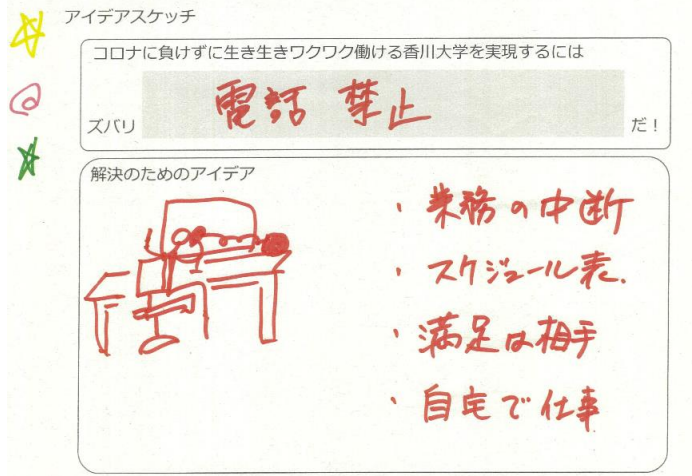 アイデアスケッチ
コロナに負けずに生き生きワクワク働ける香川大学を実現するには
ズバリ 電話 禁止 だ！
解決のためのアイデア
・業務の中断
・スケジュール表.
・満足は相手
・自宅で仕事